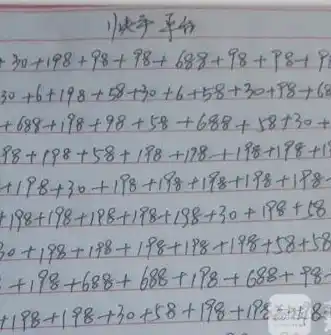 快手平台
+30+198+98+98+688+98+98+9
30+6+198+58+30+6+58+30+98+68
+688+198+98+58+688+58+30+
98+198+58+198+198+198+198+1
+198+30+198+198+198+198+198
+198+198+198+198+198+30+198+58
30+198+198+198+198+198+58+58
+198+688+688+198+688+98
+198+198+30+58+198+198